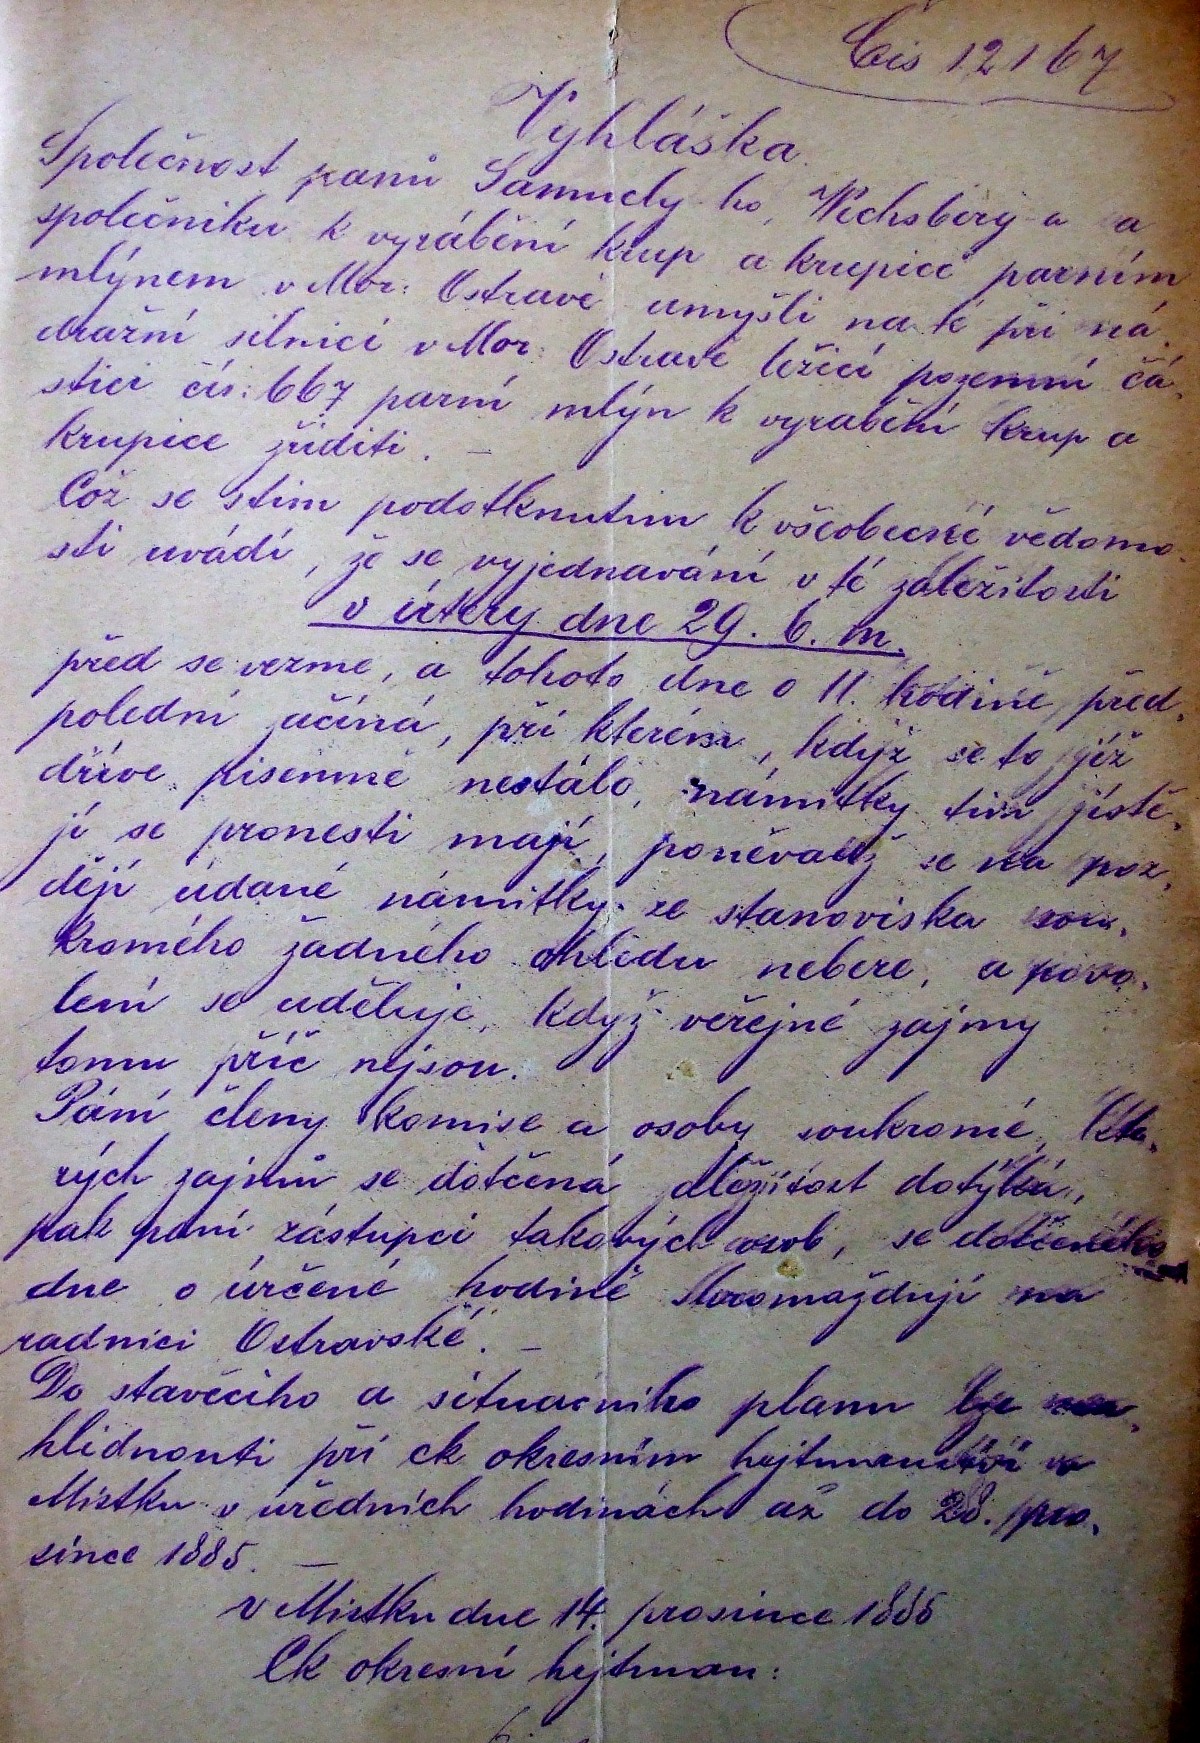 Čis 12167
Vyhláška.
Společnost panů Samuely ho, Wechsberg a a
společniku k vyrábění krup a krupice parním
mlýnem v Mor: Ostravě umyšli na k při ná,
dražní silnici v Mor: Ostravě ležící pozemní čá,
stici čís: 667 parní mlýn k vyrabění krup a
krupice zříditi. —
Což se stím podotknutím k všeobecné vědomo,
sti uvádí, že se vyjednavání v té zaležitosti
v úterý dne 29. t. m.
před se vezme, a tohoto dne o 11. hodině před,
polední učíná, při kterém, když se to již
dříve pisemně nestálo, námitky tim jistě,
ji se pronesti mají, poněvadž se na poz,
ději udané námitky ze stanoviska sou,
kromého žadného ohledu nebere, a povo,
lení se uděluje, když veřejné zajmy
tomu příč nejsou.
Páni členy komise a osoby soukromé, kte,
rých zajmů se dotčená dležitost dotýká,
pak paní zástupci takových osob, se dotčeného
dne o určené hodině shromažďují na
radnici Ostravské. —
Do stavěcího a situačního planu lze na,
hlídnouti při ck okresním hejtmanství v
Místku v uředních hodinách až do 28. pro,
since 1885. —
V Místku dne 14. prosince 1885
Ck okresní hejtman: